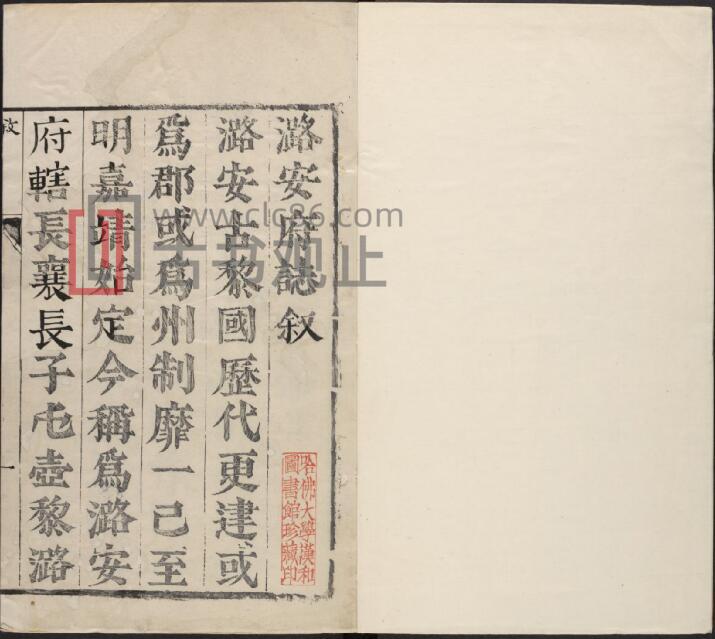 潞安府誌叙
潞安古黎國歷代更建或
爲郡或爲州制靡一己至
明嘉靖始定今稱爲潞安
府轄長襄長子屯壺黎潞
哈佛大學漢和
圖書館珍藏印
www.clc86.com
古书观止